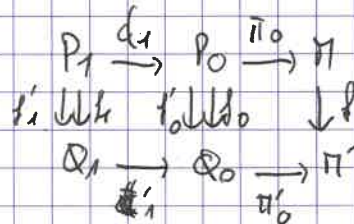 P₁ d₁ P₀ Π₀ M
f'₁ f₁ f'₀ f₀ f
Q₁ d'₁ Q₀ Π'₀ M'